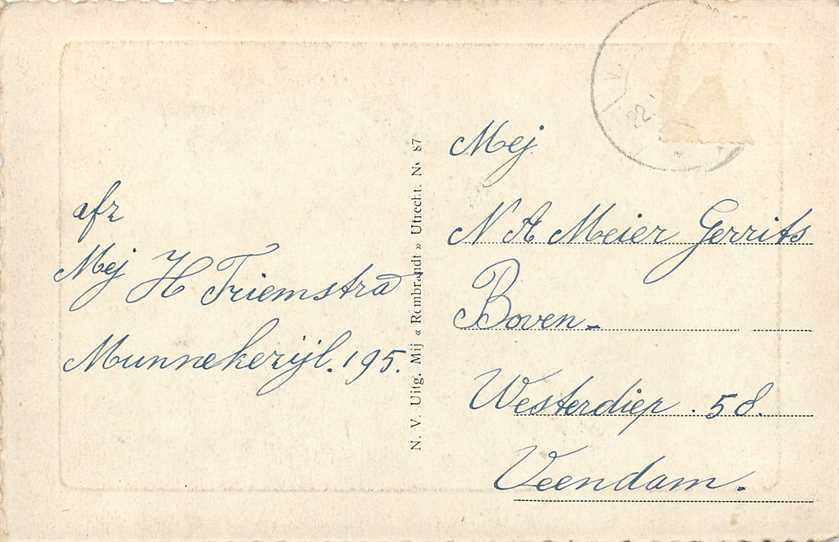 afz
Mej H Triemstra
Munnekezijl. 195.
N. V. Uitg. Mij « Rembrandt » Utrecht. No 87
Mej
N A Meier Gerrits
Boven-
Westerdiep. 58.
Veendam.
22